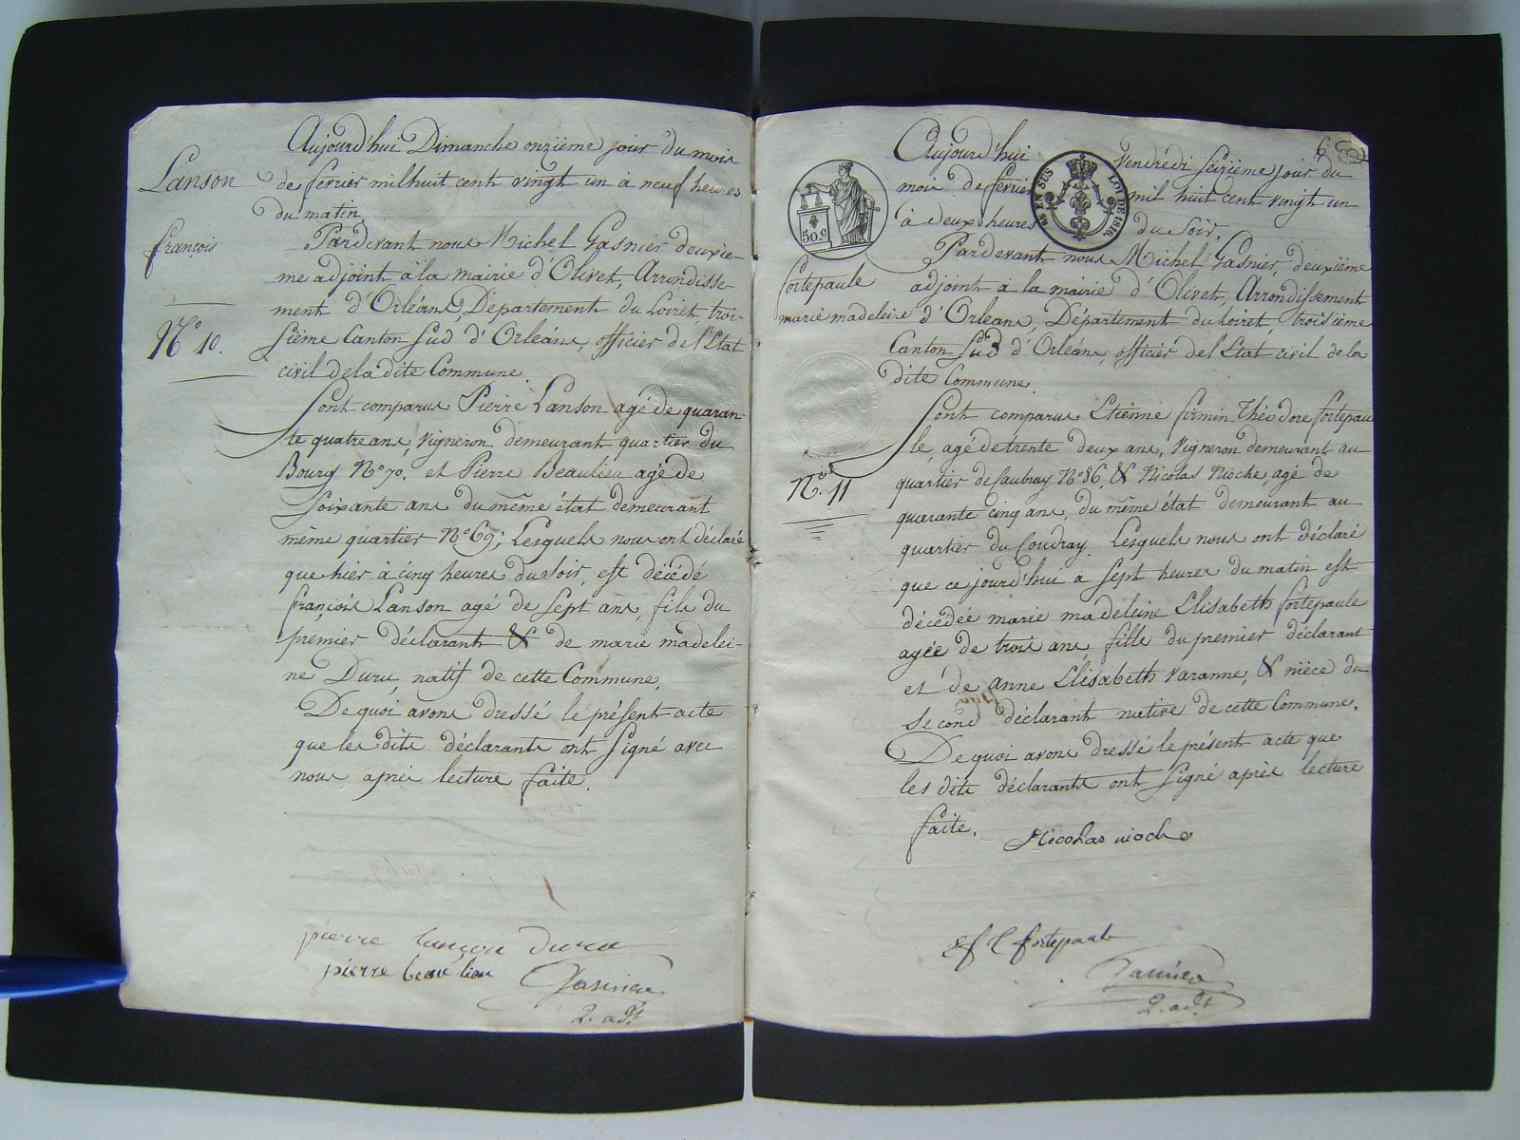 Aujourd'hui Dimanche onzième jour du mois
de février mil huit cent vingt un à neuf heures
du matin
Lanson
françois
N° 10.
Pardevant nous Michel Gasnier deuxie-
me adjoint à la mairie d'Olivet, Arrondisse-
ment d'Orléans, Département du Loiret, troi-
sième Canton Sud d'Orléans, officier de l'Etat
civil de la dite Commune.
Sont comparus Pierre Lanson agé de quaran-
te quatre ans, vigneron demeurant quartier du
Bourg N° 70. et Pierre Beaulieu agé de
soixante ans du même état demeurant
même quartier N° 69; Lesquels nous ont déclaré
que hier à cinq heures du soir, est décédé
françois Lanson agé de sept ans, fils du
premier déclarant & de marie madelei-
ne Duru, natif de cette Commune.
De quoi avons dressé le présent acte
que les dits déclarants ont signé avec
nous après lecture faite.
pierre lanson duru
pierre beaulieu
Gasnier
2. adjt
Aujourd'hui Vendredi seizième jour du
mois de février mil huit cent vingt un
à deux heures du soir,
50.c
EN SUS
LOI DE 1816
fortepaule
marie madeleine
N°. 11
Pardevant nous Michel Gasnier, deuxième
adjoint à la mairie d'Olivet, Arrondissement
d'Orléans, Département du Loiret, troisième
Canton Sud d'Orléans, officier de l'Etat civil de la
dite Commune.
Sont comparus Etienne firmin Théodore fortepau
le, agé de trente deux ans, vigneron demeurant au
quartier de Caubray N° 86, & Nicolas Nioche, agé de
quarante cinq ans, du même état demeurant au
quartier du Coudray. Lesquels nous ont déclaré
que ce jourd'hui à sept heures du matin est
décédée marie madeleine Elisabeth fortepaule
agée de trois ans, fille du premier déclarant
et de anne Elisabeth Varanne, & nièce du
second déclarant native de cette Commune.
De quoi avons dressé le présent acte que
les dits déclarants ont signé après lecture
faite.
Nicolas nioche
e f t fortepaule
Gasnier
2. adjt